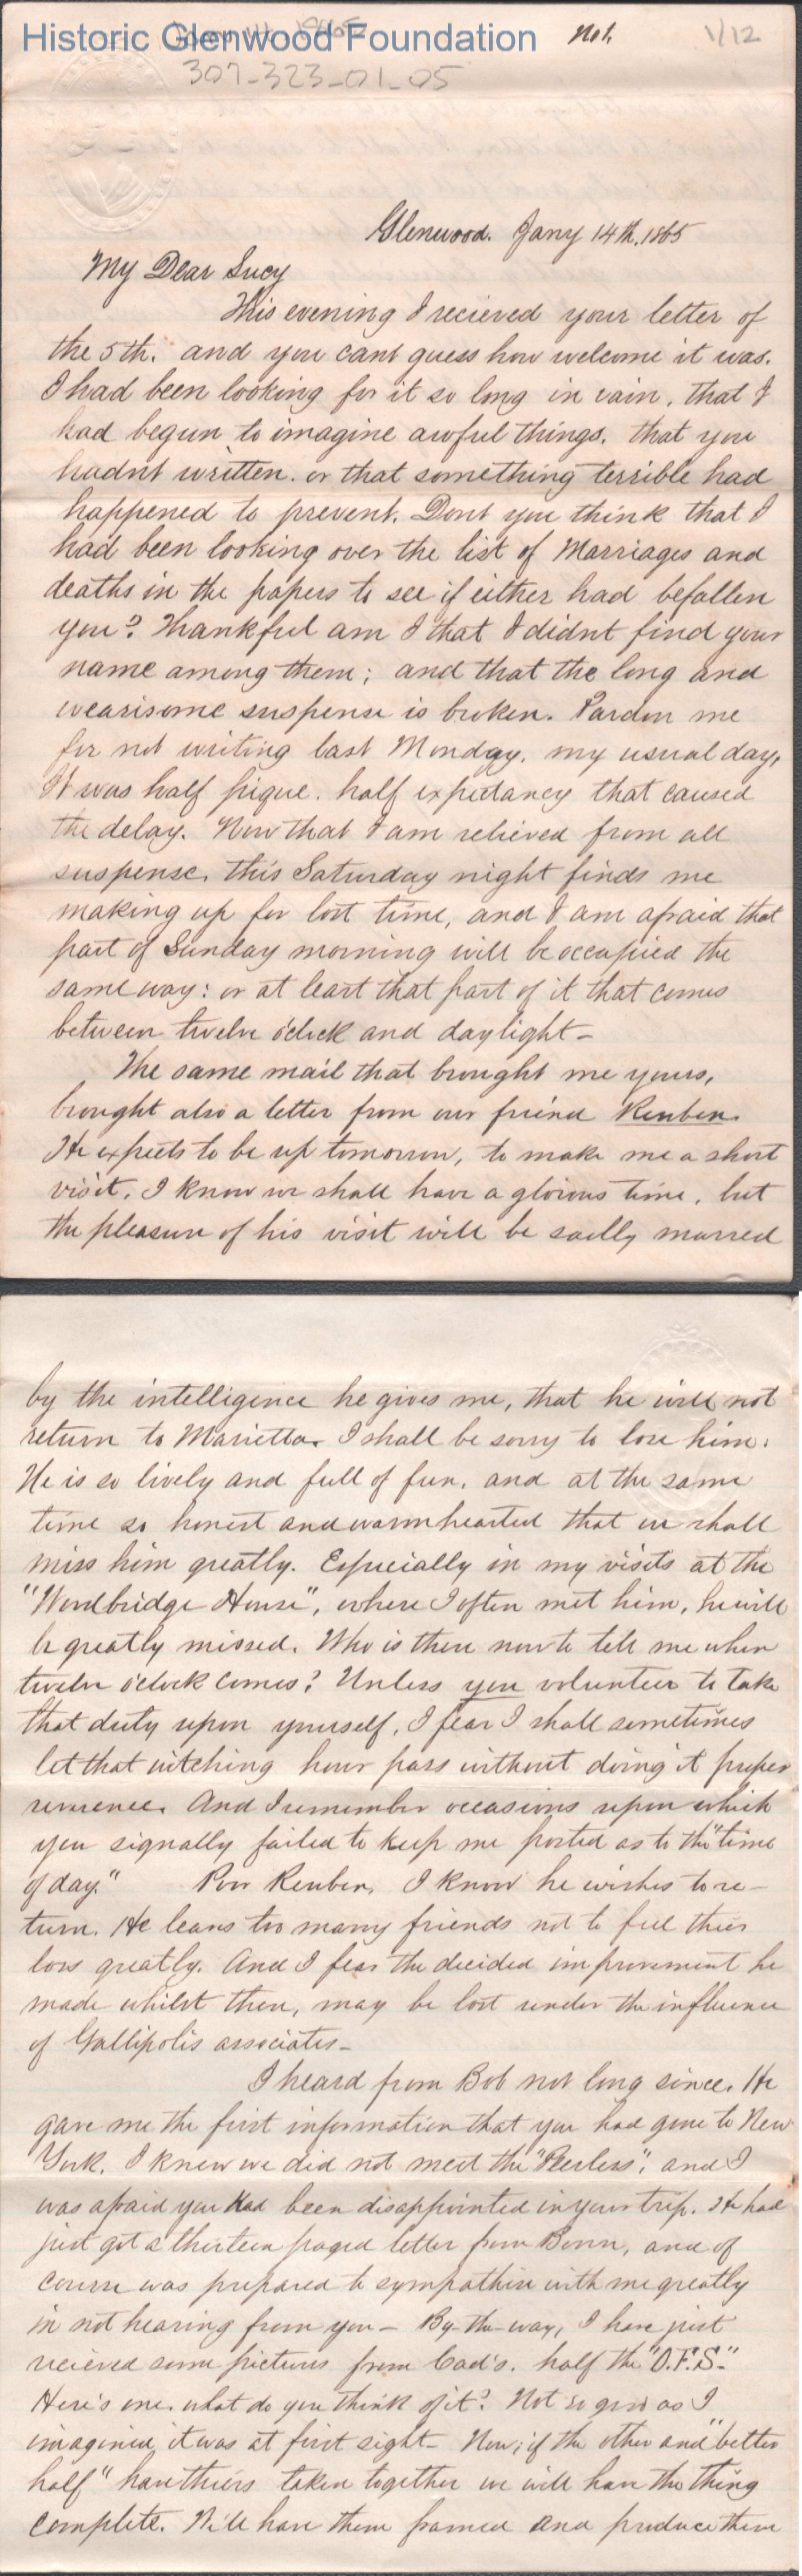 Historic Glenwood Foundation
No 1. 1/12
307-323-01-05
Glenwood. Jany 14th, 1865
My Dear Lucy
This evening I recieved your letter of
the 5th. and you cant guess how welcome it was.
I had been looking for it so long in vain, that I
had begun to imagine awful things. that you
hadnt written. or that something terrible had
happened to prevent. Dont you think that I
had been looking over the list of Marriages and
deaths in the papers to see if either had befallen
you? Thankful am I that I didnt find your
name among them; and that the long and
wearisome suspense is broken. Pardon me
for not writing last Monday, my usual day,
It was half pique. half expectancy that caused
the delay. Now that I am relieved from all
suspense, this Saturday night finds me
making up for lost time, and I am afraid that
part of Sunday morning will be occupied the
same way: or at least that part of it that comes
between twelve o'clock and daylight-
The same mail that brought me yours,
brought also a letter from our friend Reuben.
He expects to be up tomorrow, to make me a short
visit. I know we shall have a glorious time, but
the pleasure of his visit will be sadly marred
by the intelligence he gives me, that he will not
return to Marietta. I shall be sorry to lose him.
He is so lively and full of fun, and at the same
time so honest and warmhearted that we shall
miss him greatly. Especially in my visits at the
"Woodbridge House", where I often met him, he will
be greatly missed. Who is there now to tell me when
twelve o'clock comes? Unless you volunteer to take
that duty upon yourself, I fear I shall sometimes
let that witching hour pass without doing it proper
reverence. And I remember occasions upon which
you signally failed to keep me posted as to the "time
of day." Poor Reuben, I know he wishes to re-
turn. He leaves too many friends not to feel their
loss greatly. And I fear the decided improvement he
made whilst there, may be lost under the influence
of Gallipolis associates-
I heard from Bob not long since. He
gave me the first information that you had gone to New
York. I knew we did not meet the "Peerless", and I
was afraid you had been disappointed in your trip. He had
just got a thirteen paged letter from and of
course was prepared to sympathise with me greatly
in not hearing from you- By-the-way, I have just
recieved some pictures from Cad's. half the "O.F.S."
Here's one. what do you think of it? Not so good as I
imagined it was at first sight- Now, if the other and "better
half" have theirs taken together we will have the thing
complete. We'll have them framed and produce them